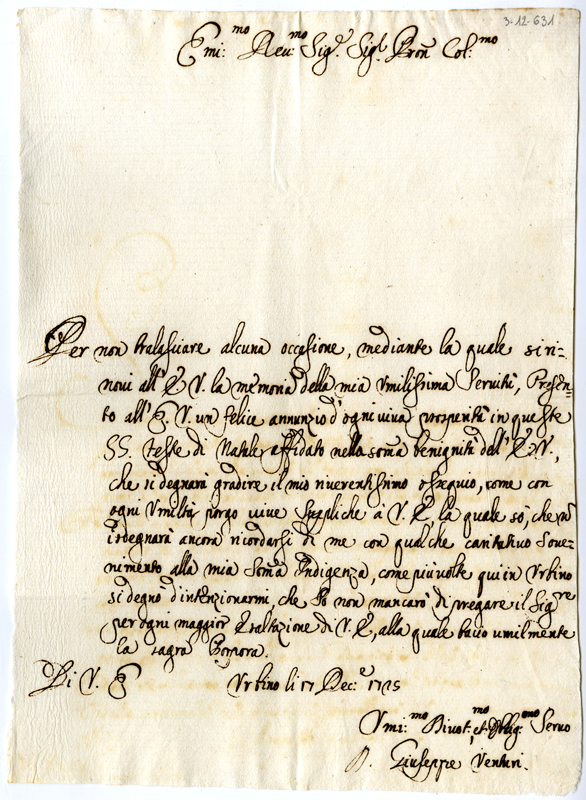 3-12-631
Emi:mo Reu:mo Sig.e Sig.e Pron Col:mo
Per non tralasciare alcuna occasione, mediante la quale si ri=
novi all'E V. la memoria della mia Vmilissima Servitù, Presen=
to all'E. V. un felice annunzio d'ogni viva prosperità in queste
SS. feste di Natale affidato nella soma benignità dell'E. V.,
che si degnarà gradire il mio riverentissimo ossequio, come con
ogni Vmiltà porgo vive suppliche à V. E. la quale sò, che n
isdegnarà ancora ricordarsi di me con qualche caritativo Sove=
nimento alla mia Soma Indigenza, come più volte qui in Vrbino
si degnò d'intenzionarmi, che Io non mancarò di pregare il Sigre
per ogni maggior Esaltazione di V. E, alla quale bacio umilmente
la sagra Porpora.
Di V. E Vrbino li 17 Dec.e 1725
Vmi:mo Divot:mo et Obblig:mo Servo
Giuseppe Venturi.